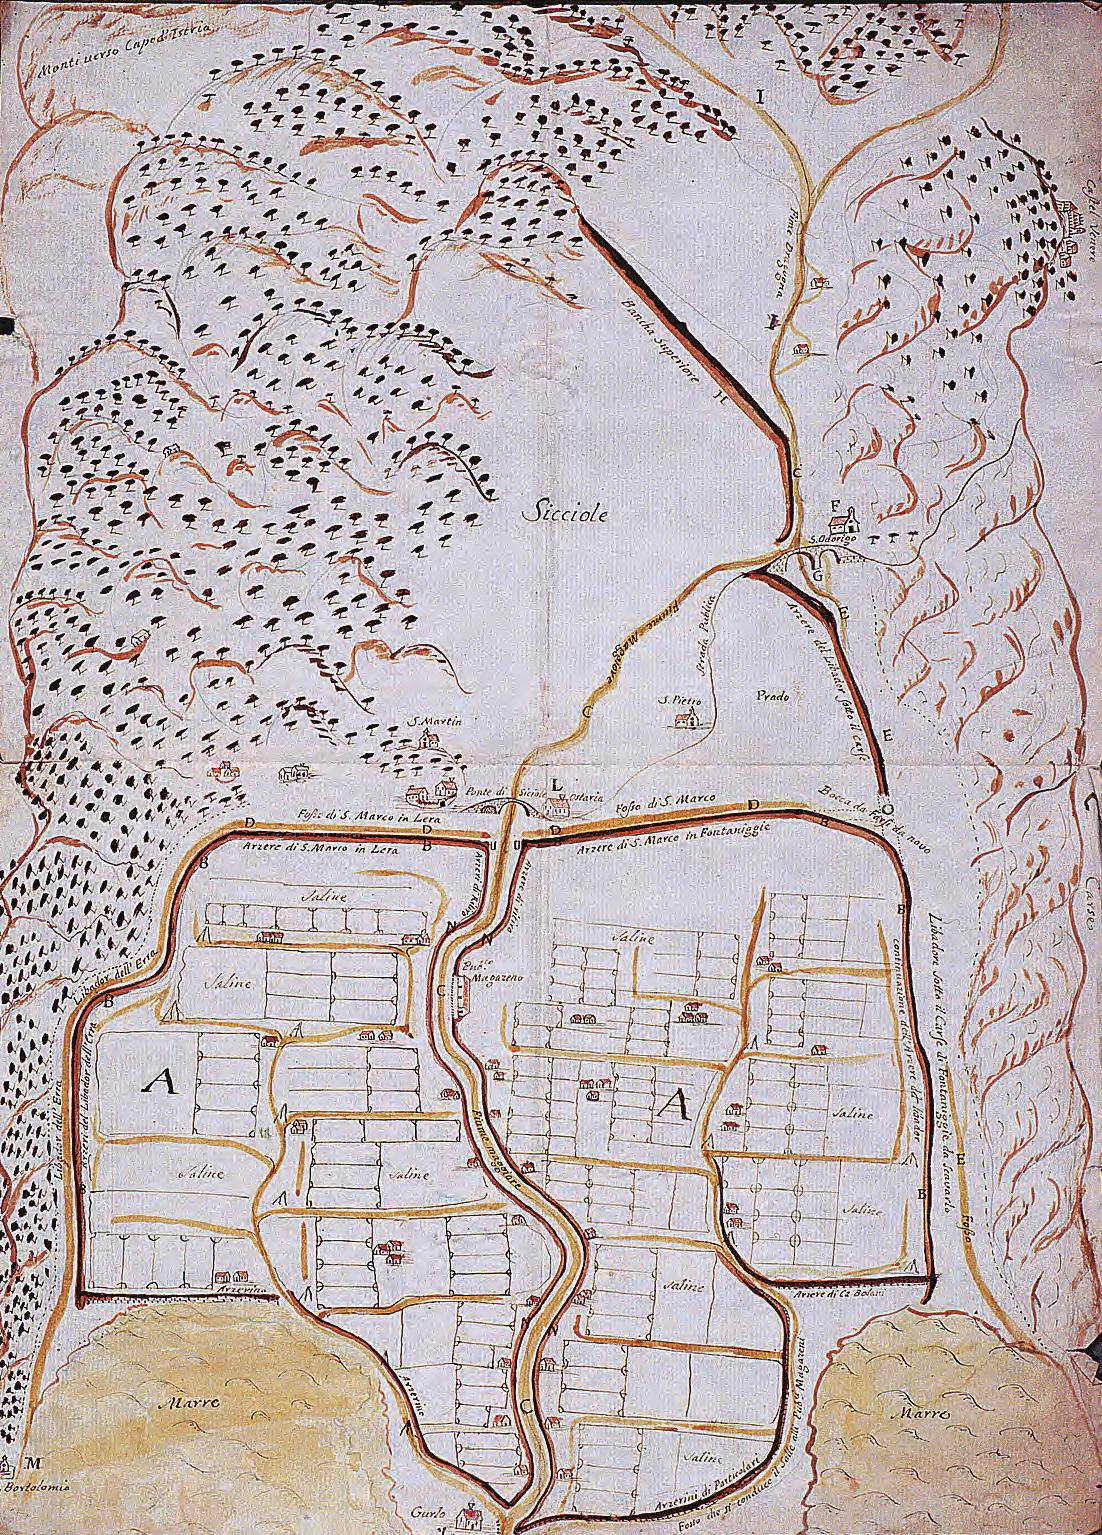 Monti verso Capo d'Istria
I
Caste Venere
Fiume Dragogna
I
Bancha Superiore
H
C
Sicciole
F
S. Odorigo
G
E
Fiume Maggiore
Strada Publica
Arzere del Libador sotto il Carse
S. Pietro
Prado
C
E
S. Martin
L
Ponte di Siciole
Ostaria
Bocca da farsi da novo
Fosso di S. Marco in Lera
Fosso di S. Marco
D
D
D
B
B
B
B
Arzere di S. Marco in Lera
Arzere di S. Marco in Fontaniggie
Carse
Saline
N
N
B
Saline
Libador dell' Erra
B
Pub.co
Magazeno
C
Saline
Libadora sotto il Carse di Fontaniggie da scavarsi
continuazione dell' Arzere del libador
A
A
Saline
Libador dell' Erra
Arzere del Libador dell' Erra
Fiume maggiore
Saline
Saline
B
B
E
Saline
Fosso
Arzerino
Saline
Arzere di Ca Bolani
N
N
Marre
Marre
Arzerino
C
M
S. Bortolomio
Saline
Arzerini di Particolari
Fosso che si conduce il Salle alli Pub.ci Magazeni
Gurlo